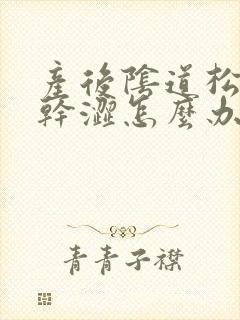 產後陰道松
幹澀怎麼办
青青子襟